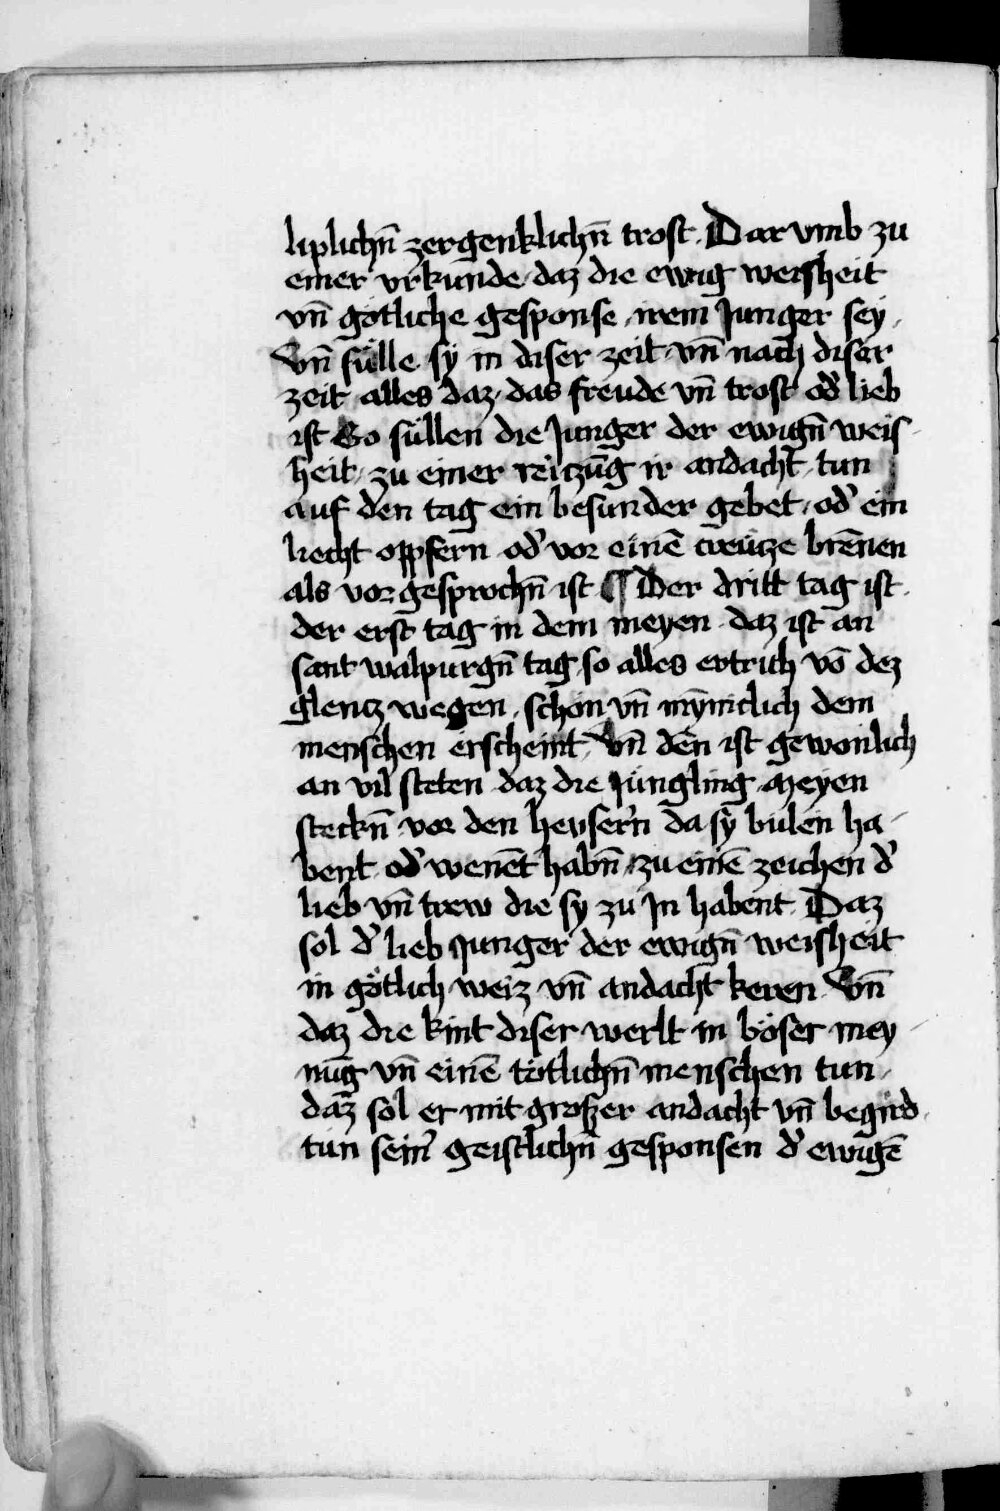 liplichn̄ zergenklichn̄ trost. Dar vmb zu
einer vrkunde daz die ewig weisheit
vn̄ götliche gesponse irem Junger sey,
Vn̄ fülle sÿ in diser zeit vn̄ nach diser
zeit alles daz, das freude vn̄ trost od̕ lieb
ist So süllen die Junger der ewign̄ weis-
heit, zu einer reitzūg ir andacht, tun
auf den tag ein besunder gebet, od̕ ein
liecht oppfern od̕ vor einē creütze brēnen
als vor gesprochn̄ ist ¶ Der dritt tag ist
der erst tag in dem meyen daz ist an
sant walpurgn̄ tag, so alles ertrich vō dez
glentz wegen, schön vn̄ mȳniclich dem
menschen erscheint, Vn̄ den ist gewonlich
an vil steten daz die Jüngling meyen
steckn̄ vor den heusern da sÿ bulen ha-
bent od̕ wenēt habn̄, zu einē zeichen d̕
lieb vn̄ trew die sy zu Jn habent. Daz
sol d̕ lieb Junger der ewign̄ weisheit
in götlich weiz vn̄ andacht keren Vn̄
daz die kint diser werlt in böser mey-
nūg vn̄ einē tötlichn̄ menschen tun,
daz sol er mit großer andacht vn̄ begird
tun sein̕ geistlichn̄ gesponsen d̕ ewigē